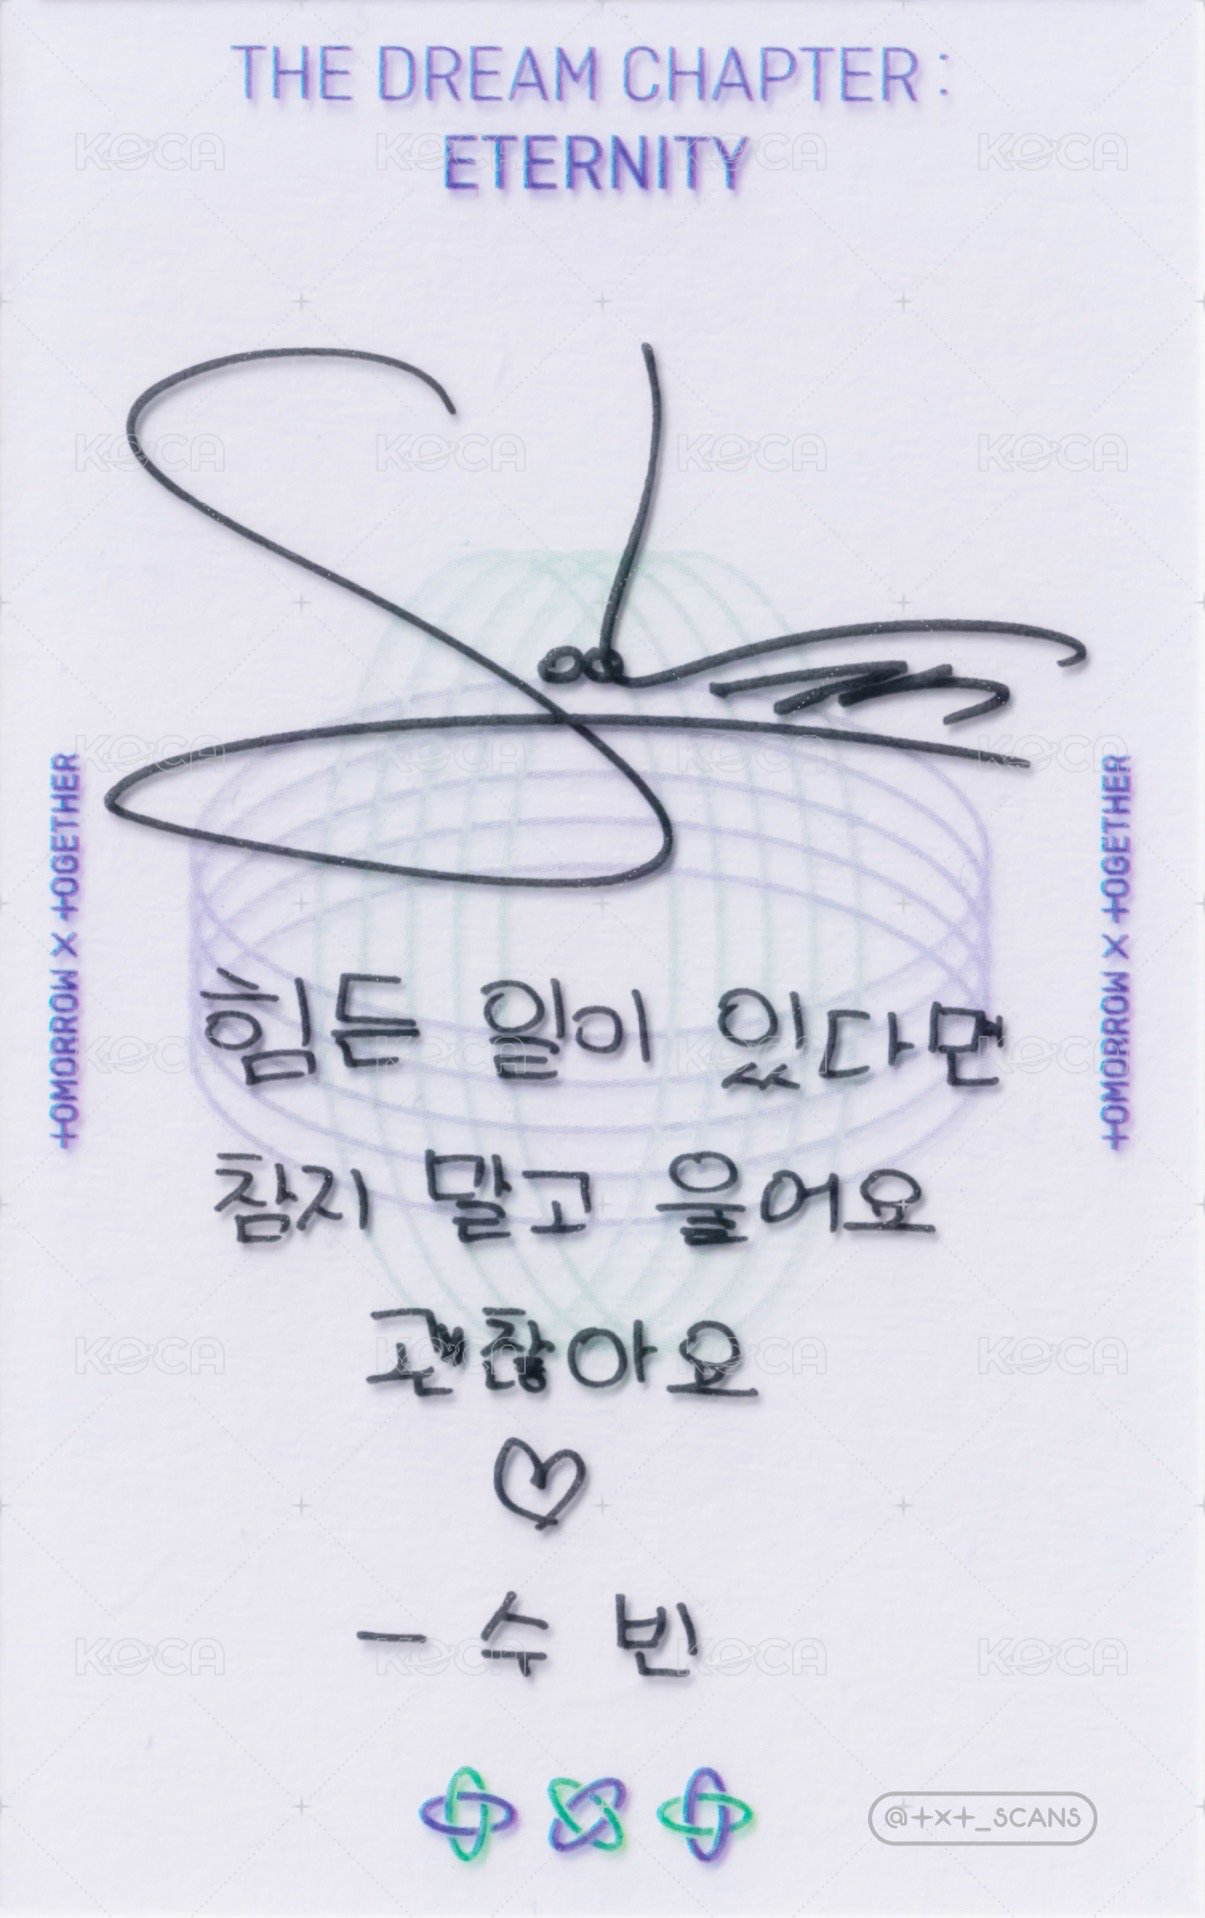 THE DREAM CHAPTER:
ETERNITY
TOMORROW X TOGETHER
TOMORROW X TOGETHER
힘든 일이 있다면
참지 말고 울어요
괜찮아요
♡
- 수빈
@TXT_SCANS
KOCA